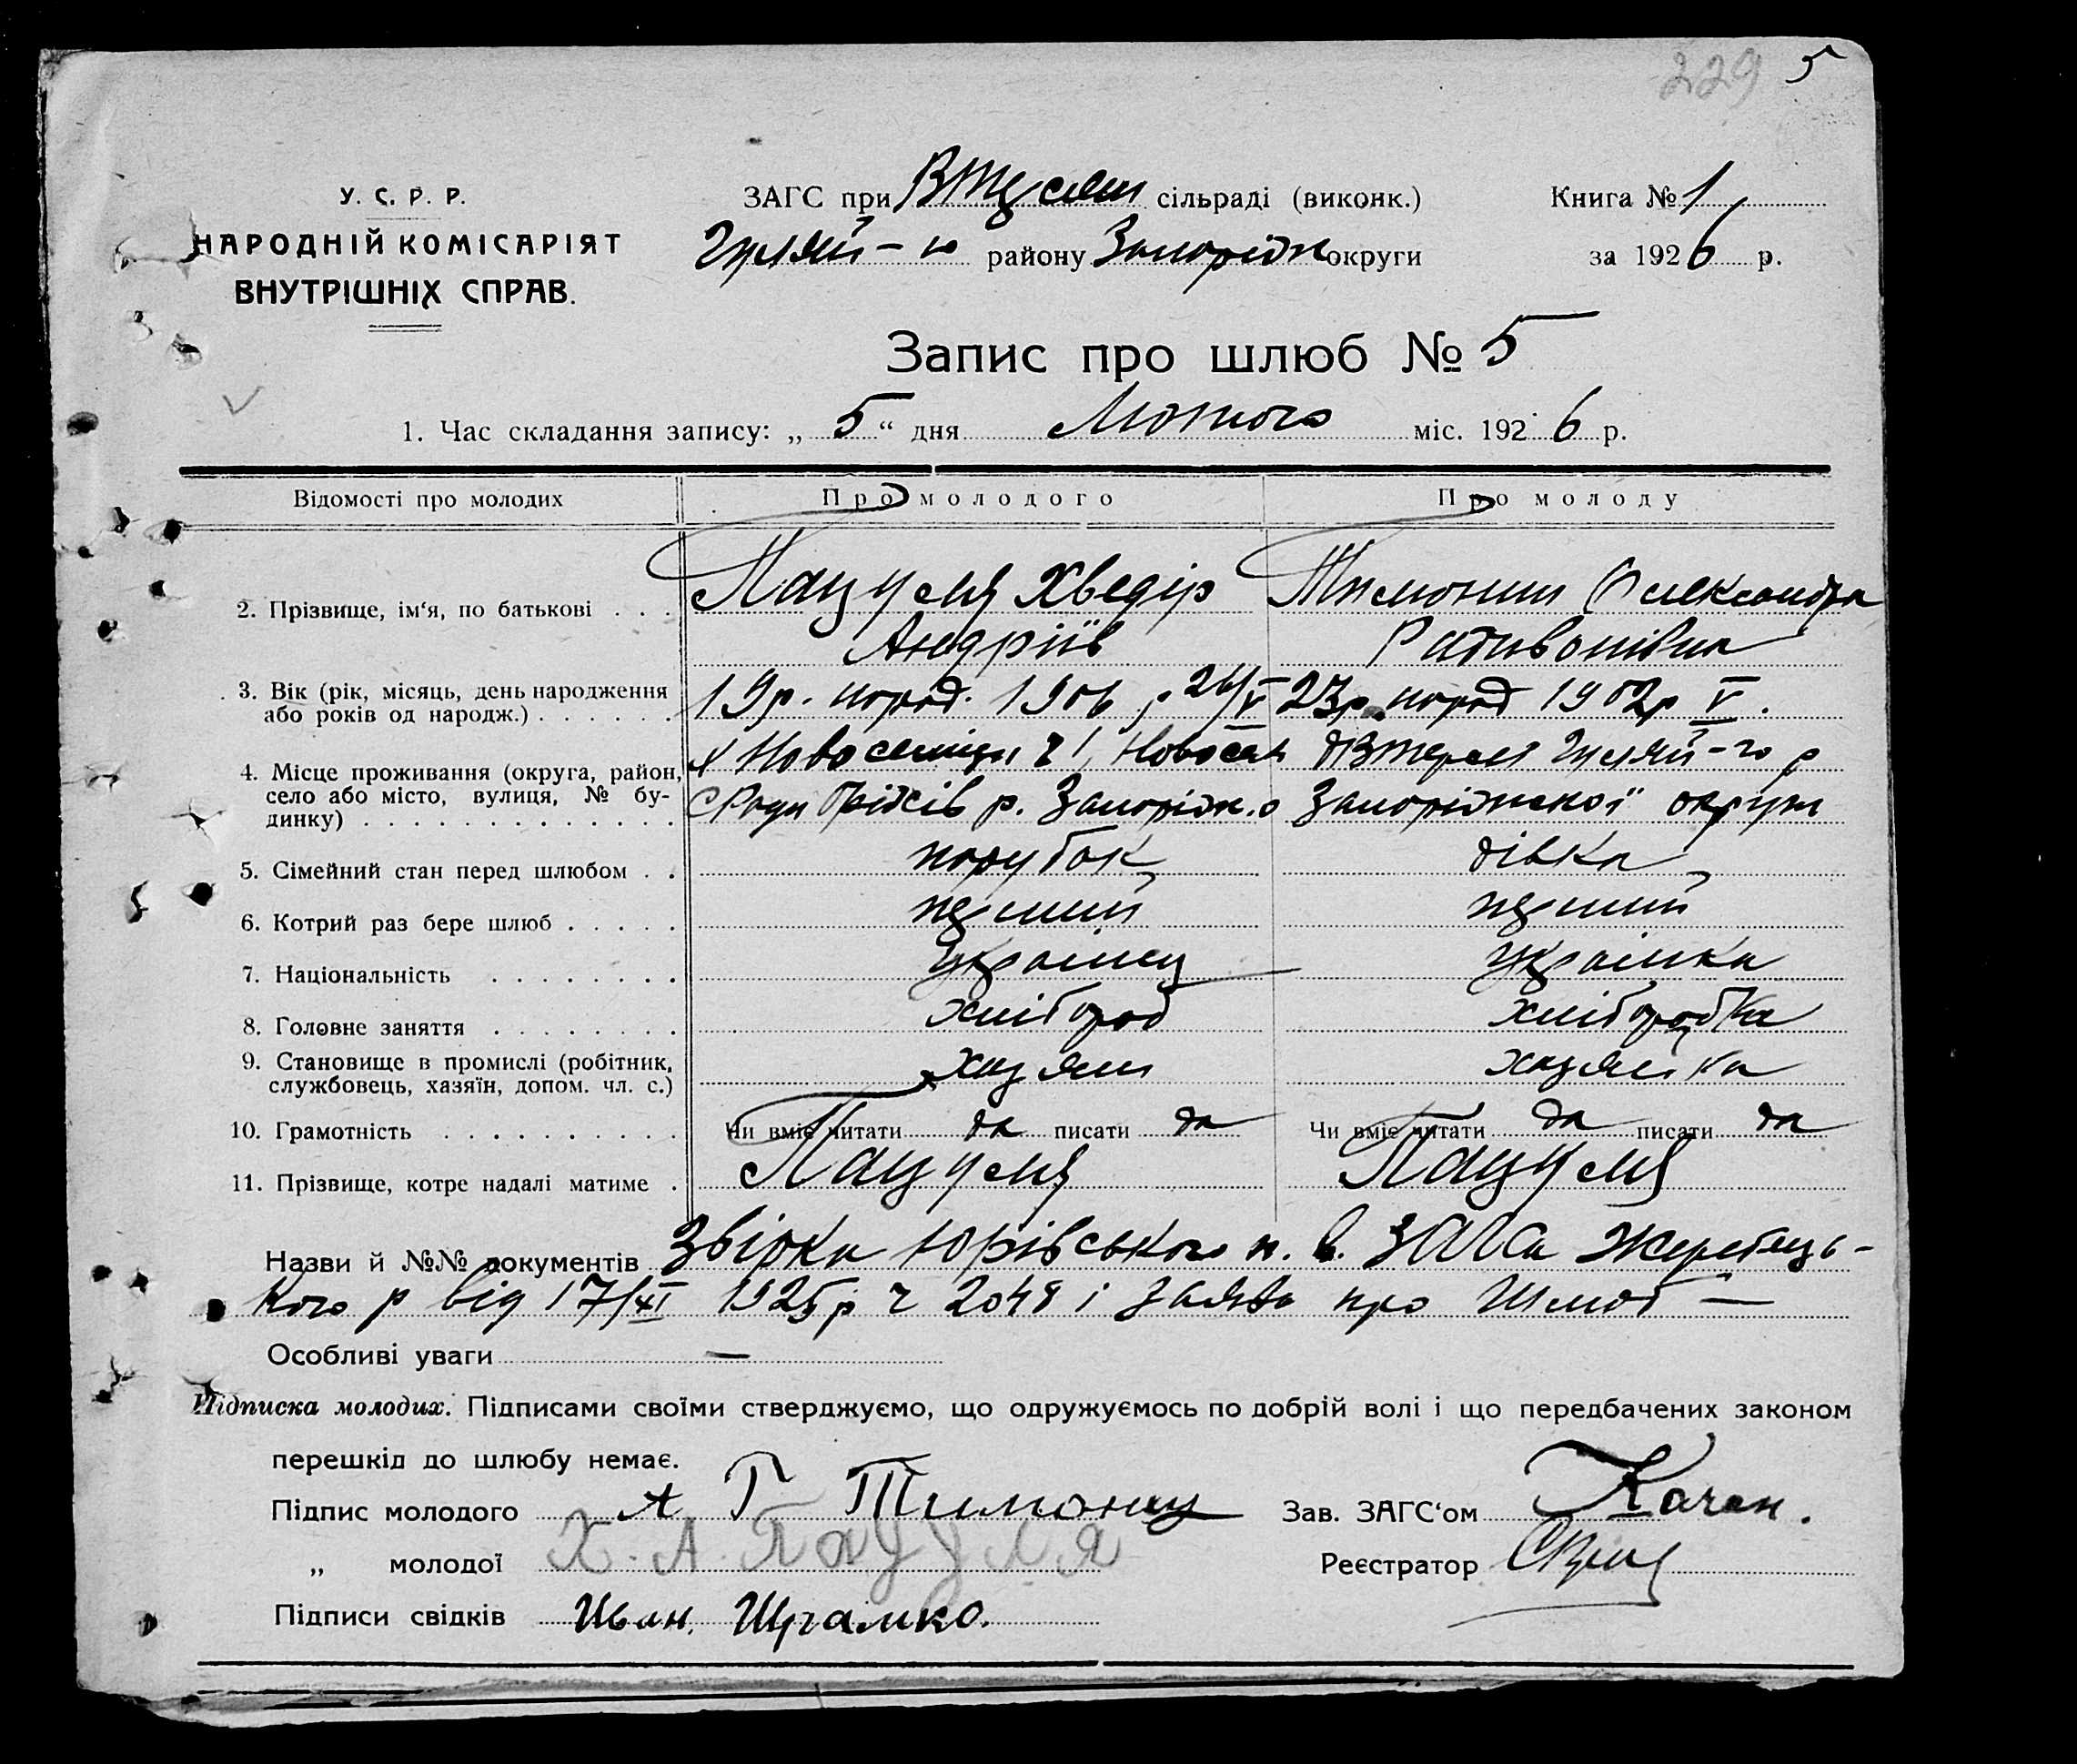 229 5
У. С. Р. Р.
НАРОДНІЙ КОМІСАРІЯТ
ВНУТРІШНІХ СПРАВ.
ЗАГС при сільраді (виконк.)
Гуляй-го району Запоріж округи
Книга № 1
за 1926 р.
Запис про шлюб № 5
1. Час складання запису: „ 5 “ дня Лютого міс. 1926 р.
Відомості про молодих
Про молодого
Про молоду
2. Прізвище, ім‘я, по батькові . . .
Пацуля Хведір
Андріїв
Тимошии Олександра
Радивонівна
3. Вік (рік, місяць, день народження
або років од народж.) . . . . . .
19р. народ. 1906 р 26/V
23р. народ 1902р V.
4. Місце проживання (округа, район,
село або місто, вулиця, № бу-
динку) . . . . . . . . . . . . .
х Новоселиця ч 1, Новосел
с Ради р. Запоріж. о
Гуляй-го р
Запоріжської округи
5. Сімейний стан перед шлюбом . .
парубок
дівка
6. Котрий раз бере шлюб . . . . .
перший
перший
7. Національність . . . . . . . .
Українец
Українка
8. Головне заняття . . . . . . . .
хлібороб
хліборобка
9. Становище в промислі (робітник,
службовець, хазяїн, допом. чл. с.)
хазяин
хазяйка
10. Грамотність . . . . . . . . . .
Чи вміє читати да писати да
Чи вміє читати да писати да
11. Прізвище, котре надалі матиме .
Пацуля
Пацуля
Назви й №№ документів Звірка Юрівського п. в. ЗАГСа Жеребець-
кого р від 17/XI 1925р ч 2048 і заява про Шлюб —
Особливі уваги —
Підписка молодих. Підписами своїми стверджуємо, що одружуємось по добрій волі і що передбачених законом
перешкід до шлюбу немає.
Підпис молодого А Г Тимонец
„ молодої Х. А. Пацуля
Підписи свідків Иван. Шрамко.
Зав. ЗАГС‘ом Качан.
Реєстратор